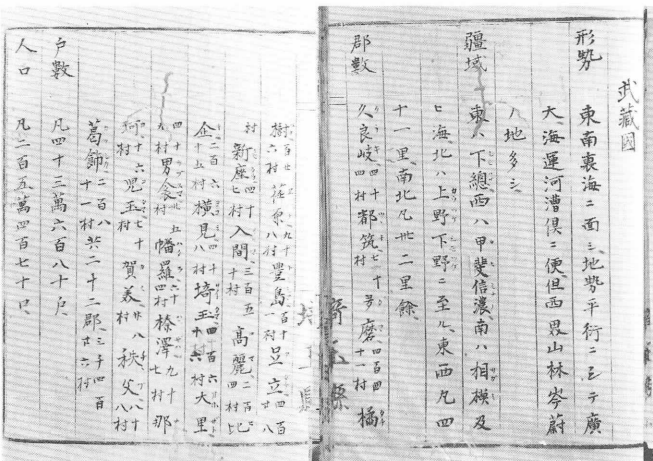 武蔵國
形勢 東南裏海ニ面シ地勢平衍ニシテ廣
大、海運河漕倶ニ便、但西畏山林岑蔚
ノ地多シ
疆域 東ハ下總西ハ甲斐信濃南ハ相模及
ヒ海、北ハ上野下野ニ至ル、東西凡四
十一里、南北凡卅二里餘
郡數 久良岐四十四村都筑七十村多磨四百四十一村橘
樹百七六村荏原九十八村豊島百十一村足立四百廿八
村新座四十七村入間三百五十村高麗二百四村比
企二百六十五村横見四十八村埼玉四百六十六村大里
四十村男衾卅五村幡羅六十四村榛澤九十七村那
珂十六村児玉七十村賀美廿八村秩父八十八村
葛飾二百八十一村共二十二郡三千四百廿六村
戸數 凡四十三萬六百八十戸
人口 凡二百五萬四百七十口